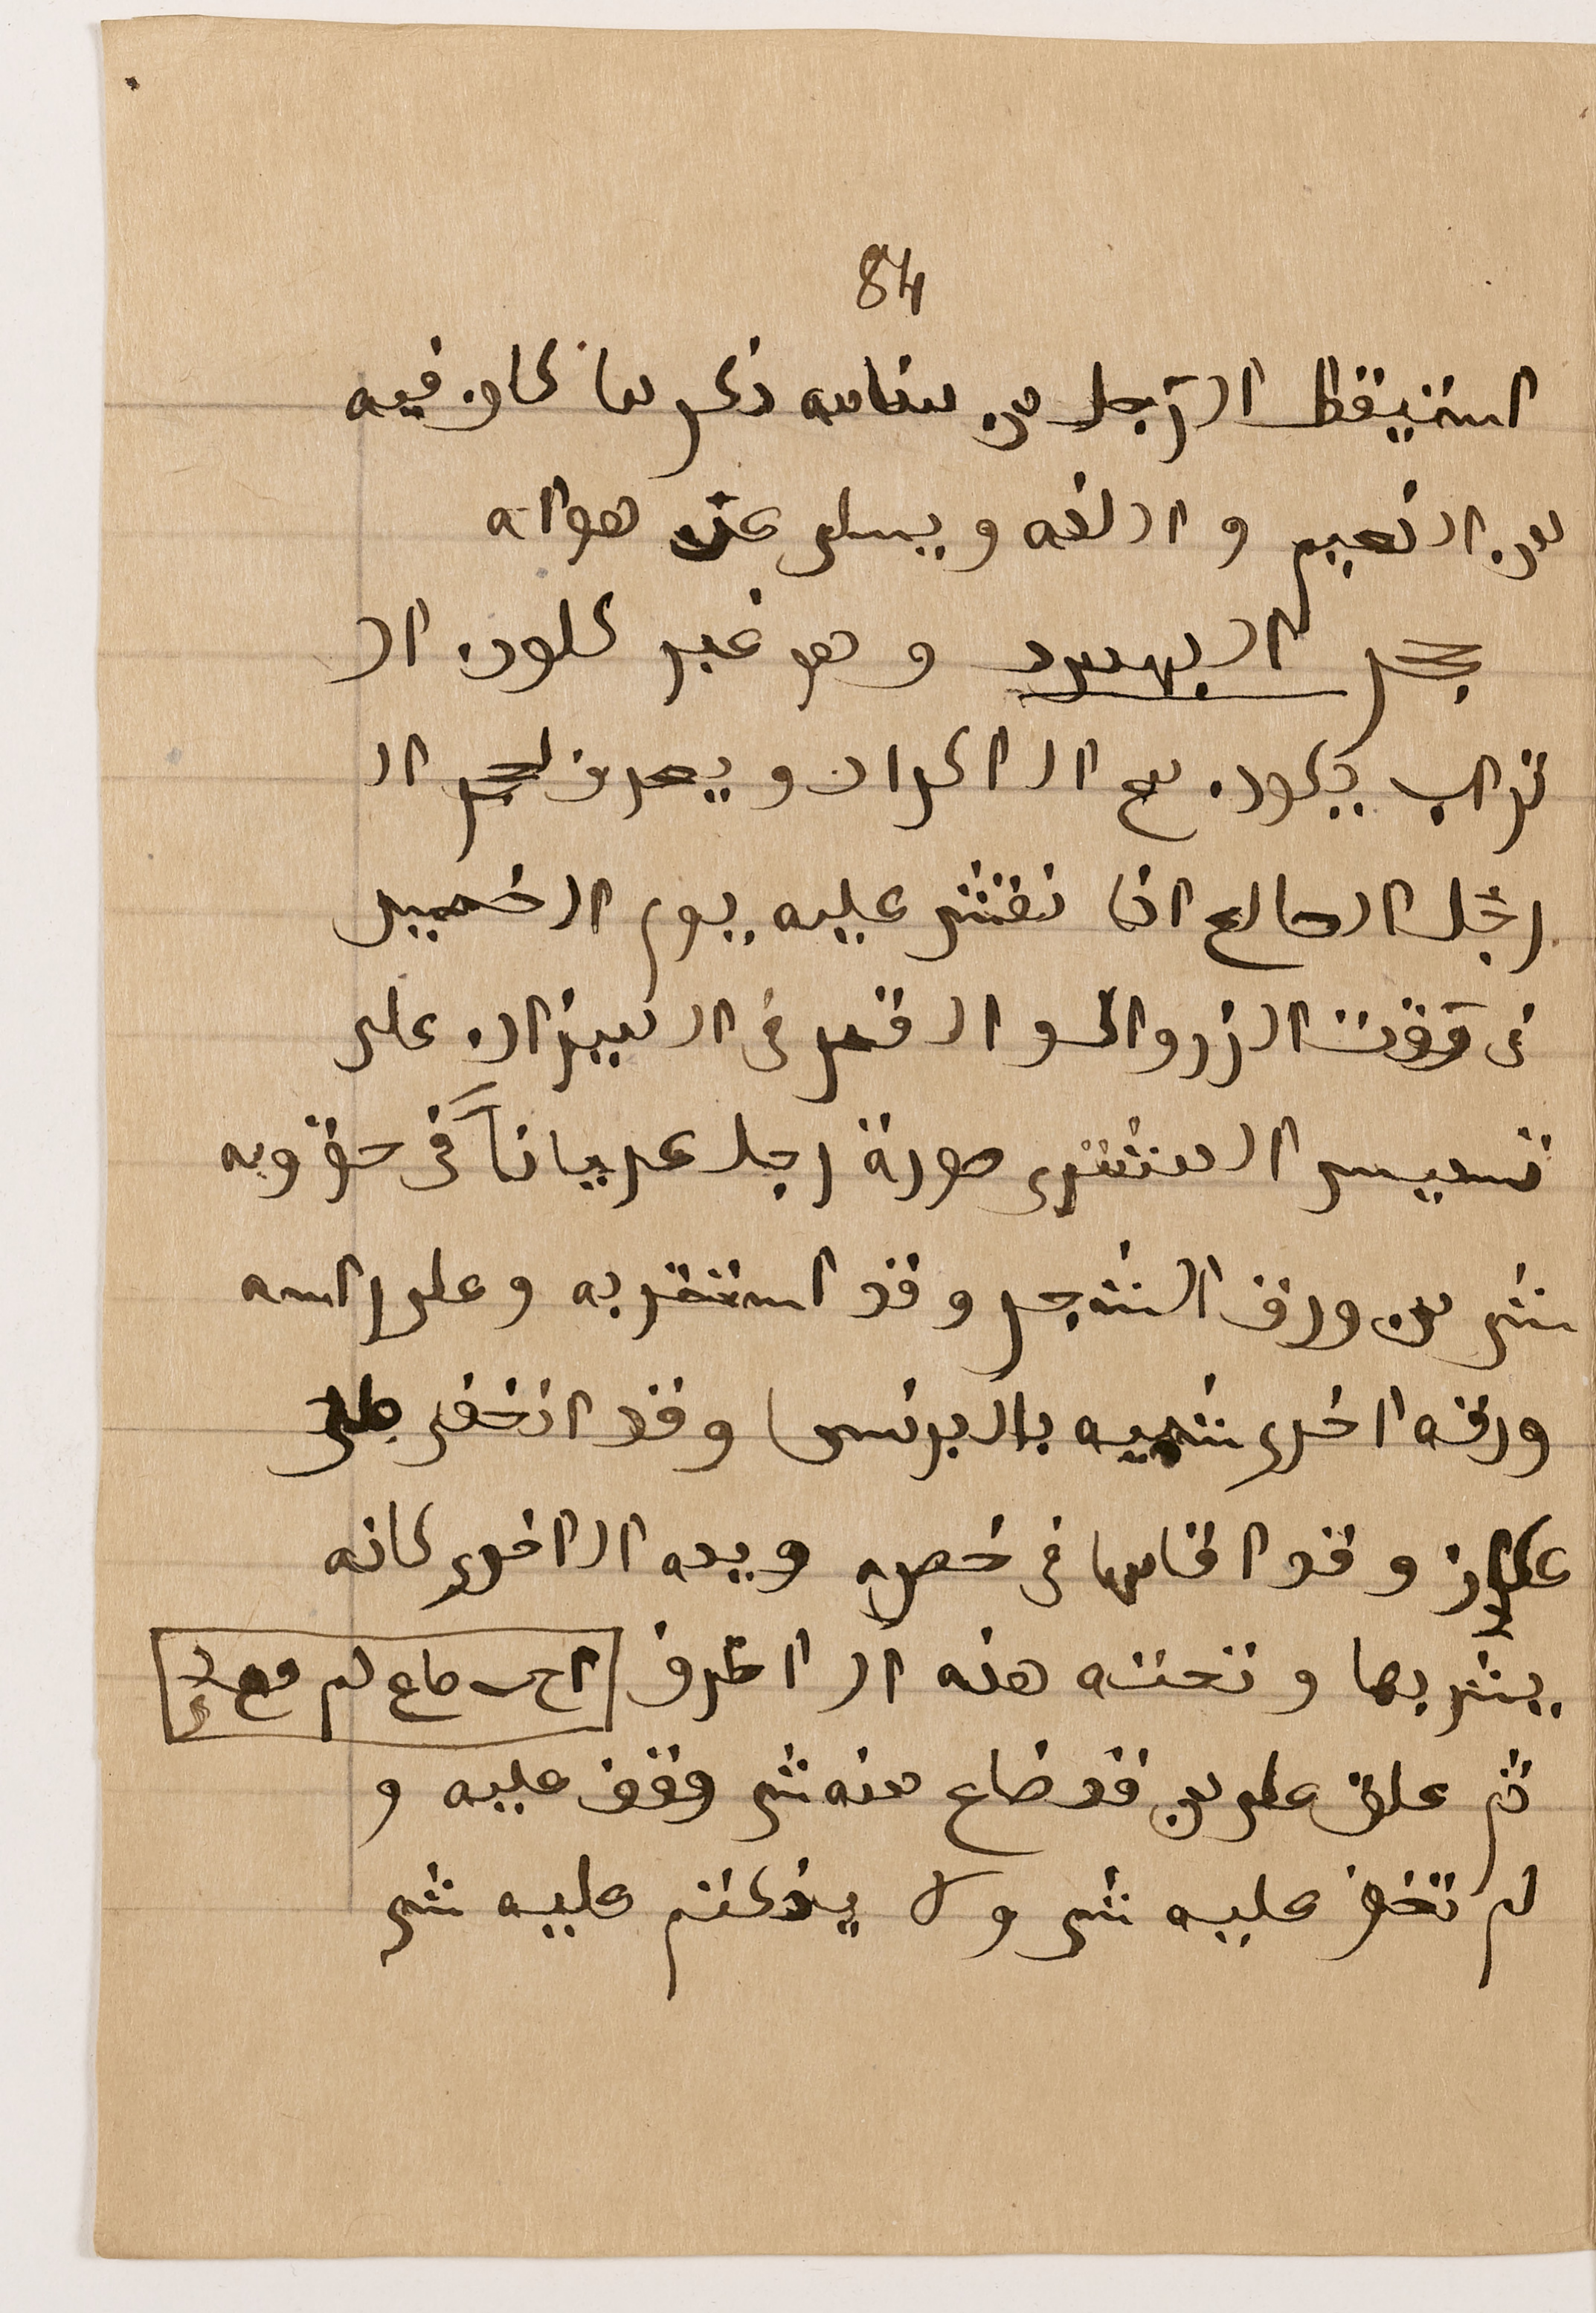 84
استيقظ الرجل من منامه ذكر ما كان فيه
من النعيم و اللغه و يسلى عن هواه
حجر اليهود و هو غبر كلون ال
تراب يكون مع الاكراد و يعرف بحجر ال
رجل الصالح اذا نقش عليه يوم الخميس
فى وقت الزوال و القمر فى الميزان على
تسديس المشترى صورة رجل عرياناً فى حقويه
شى من ورق الشجر و قد استتر به و على راسه
ورقه اخرى شبيه بالبرنس و قد اتخفى على
عكاز و قد اقامها فى خصره و يده الاخرى كانه
يشربها و تحته هذه الاحرف
ثم علق على من قد ضاع منه شى وقف عليه و
لم تخف عليه شى و لا ينكتم عليه شى